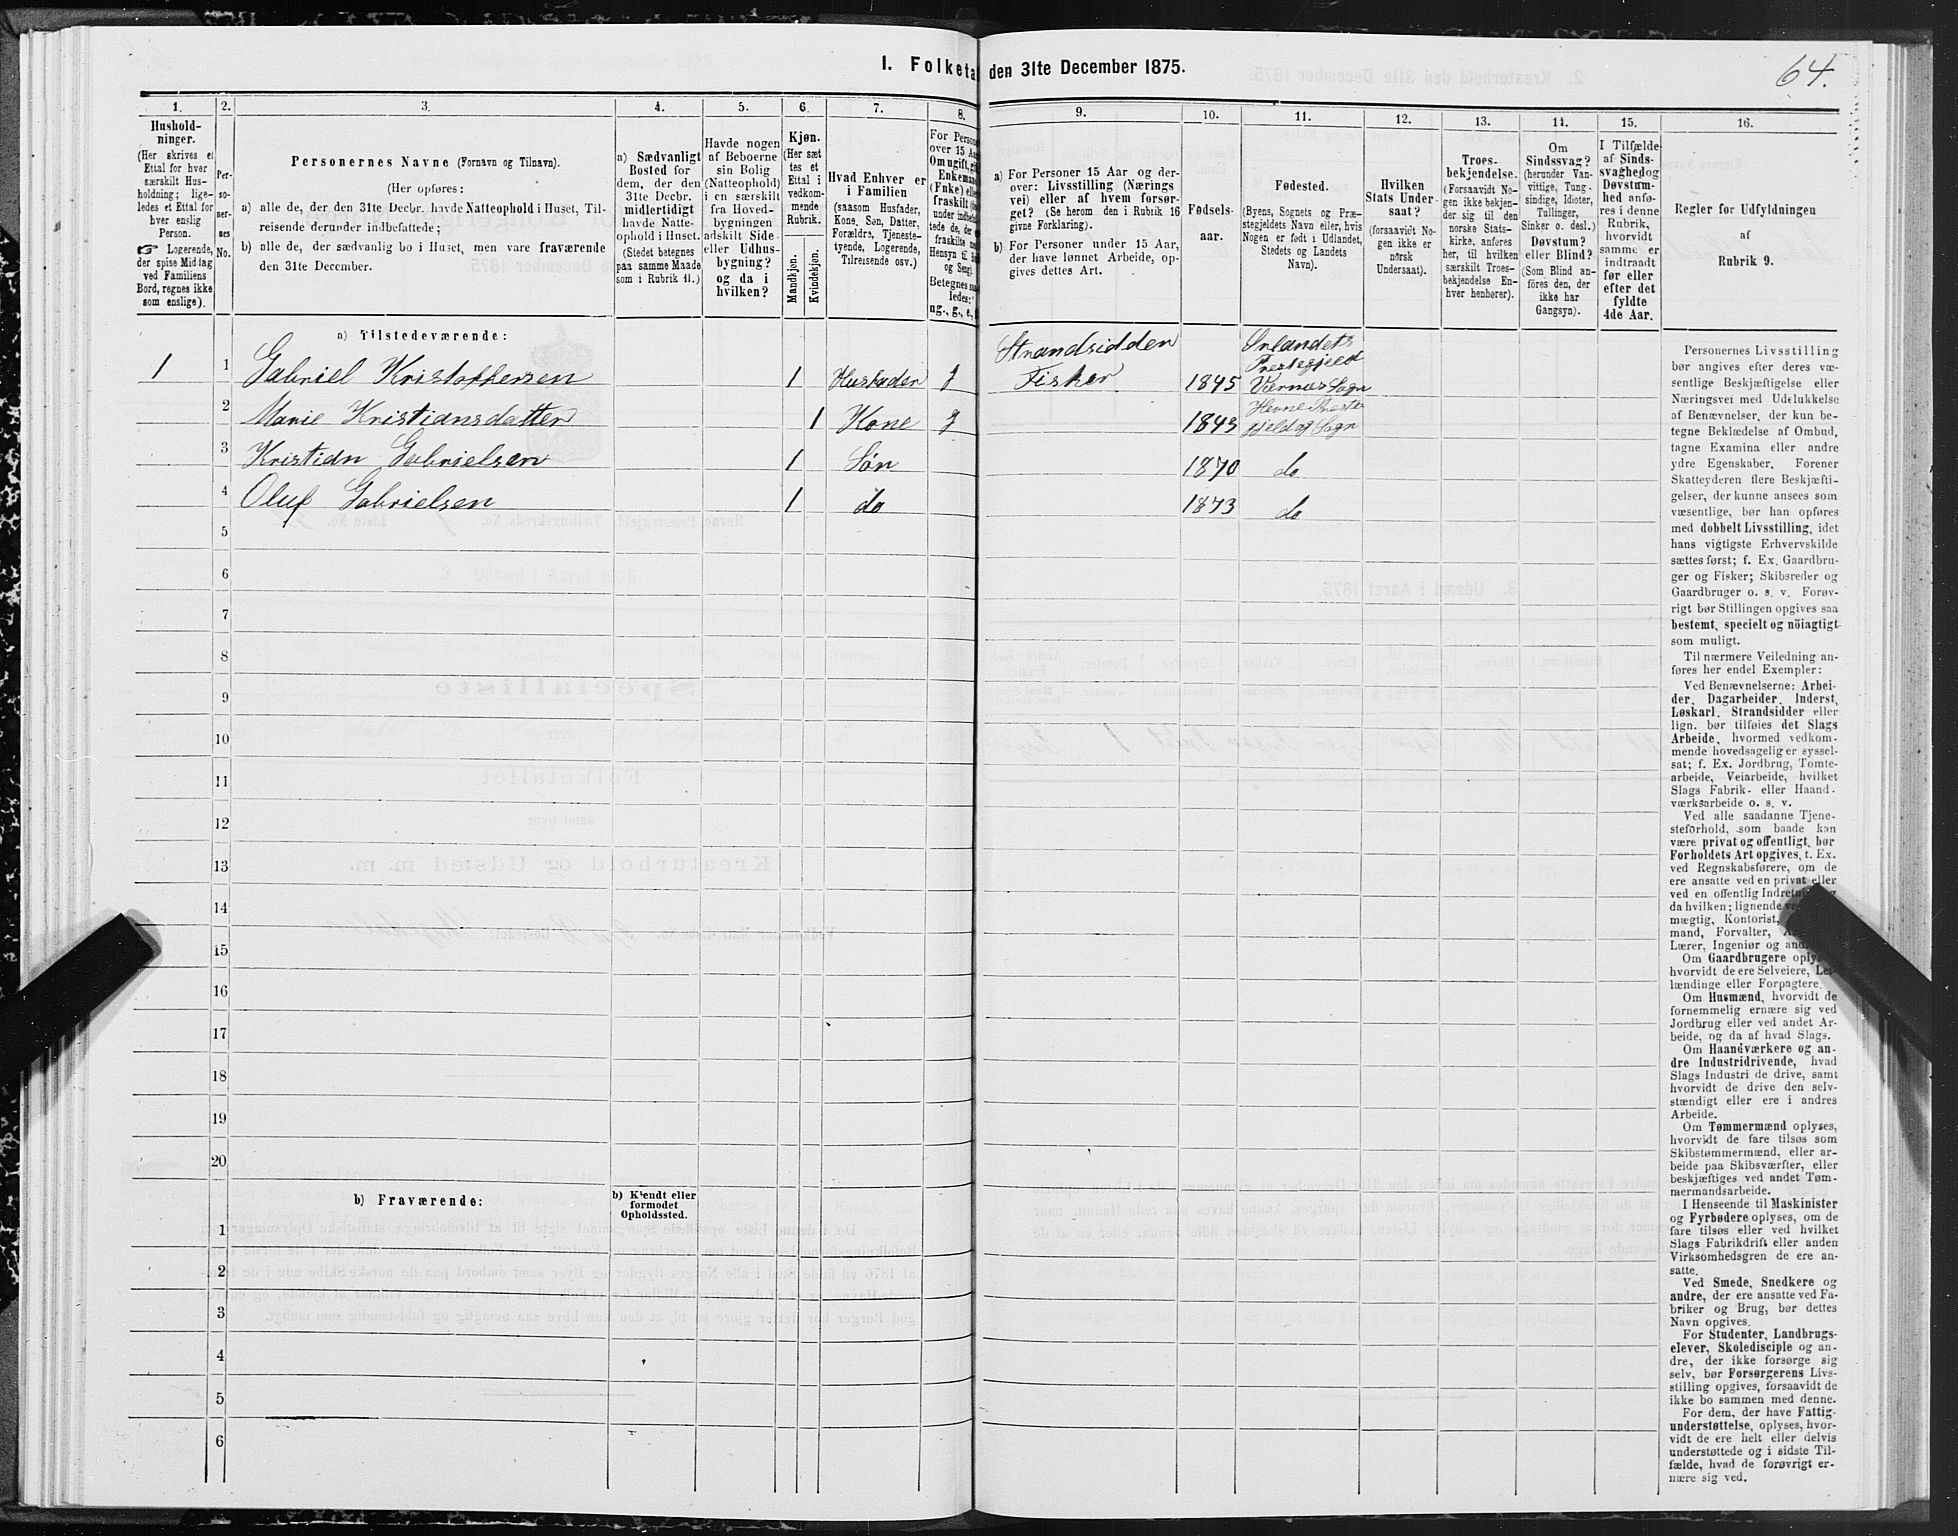 1. Folketa den 31te December 1875.
64.
1.
2.
3.
4.
5.
6.
7.
8.
9.
10.
11.
12.
13.
14.
15.
16.
Hushold-
ninger.
(Her skrives et
Ettal for hver
særskilt Hus-
holdning; lige-
ledes et Ettal for
hver enslig
Person.
☞ Logerende,
der spise Middag
ved Familiens
Bord, regnes ikke
som enslige).
Per-
so-
ner-
nes
No.
Personernes Navne (Fornavn og Tilnavn).
(Her opføres:
a) alle de, der den 31te Decbr. havde Natteophold i Huset, Til-
reisende derunder indbefattede;
b) alle de, der sædvanlig bo i Huset, men vare fraværende
den 31te December.
a) Sædvanligt
Bosted for
dem, der den
31te Decbr.
midlertidigt
havde Natte-
ophold i Huset.
(Stedet betegnes
paa samme Maade
som i Rubrik 11.)
Havde nogen
af Beboerne
sin Bolig
(Natteophold)
i en særskilt
fra Hoved-
bygningen
adskilt Side-
eller Udhus-
bygning?
og da i
hvilken?
Kjøn.
(Her sæt-
tes et
Ettal i
vedkom-
mende
Rubrik.
Mandkjøn.
Kvindekjøn.
Hvad Enhver er
i Familien
(saasom Husfader,
Kone, Søn, Datter,
Forældre, Tjeneste-
tyende, Logerende,
Tilreisende osv.)
For Person
over 15 Aa
Om ugift, gi
Enkemand
(Enke) elle
fraskilt
a) For Personer 15 Aar og der-
over: Livsstilling (Nærings
vei) eller af hvem forsør-
get? (Se herom den i Rubrik 16
givne Forklaring).
b) For Personer under 15 Aar,
der have lønnet Arbeide, op-
gives dettes Art.
Fødsels-
aar.
Fødested.
(Byens, Sognets og Præ-
stegjeldets Navn eller, hvis
Nogen er født i Udlandet,
Stedets og Landets
Navn).
Hvilken
Stats Under-
saat?
(forsaavidt No-
gen ikke er
norsk
Undersaat).
Troes-
bekjendelse.
(Forsaavidt No-
gen ikke bekjen-
der sig til den
norske Stats-
kirke, anføres
her, til hvilken
særskilt Troes-
bekjendelse En-
hver henhører).
Om
Sindssvag?
(herunder Van-
vittige, Tung-
sindige, Idioter,
Tullinger,
Sinker o. desl.)
Døvstum?
eller Blind?
(Som Blind an-
føres den, der
ikke har
Gangsyn).
I Tilfælde
af Sinds-
svaghed og
Døvstum-
hed anfø-
res i denne
Rubrik,
hvorvidt
samme er
indtraadt
før eller
efter det
fyldte
4de Aar.
Regler før Udfyldningen
af
Rubrik 9.
a) Tilstedeværende:
1 1 Gabriel Kristoffersen 1 Husfader g Strandsidder Fisker 1845 Ørlandets Prestegjeld Værnes Sogn
2 Marie Kristiansdatter 1 Kone g 1843 Hevne Preste gjeld og Sogn
3 Kristian Gabrielsen 1 Søn 1870 do
4 Oluf Gabrielsen 1 do 1873 do
5
6
7
8
9
10
11
12
13
14
15
16
17
18
19
20
b) Fraværende:
b) Kjendt eller
formodet
Opholdssted.
1
2
3
4
5
6
Personernes Livsstilling
bør angives efter deres væ-
sentlige Beskjæftigelse eller
Næringsvei med Udelukkelse
af Benævnelser, der kun be-
tegne Beklædelse af Ombud,
tagne Examina eller andre
ydre Egenskaber. Forener
Skatteyderen flere Beskjæfti-
gelser, der kunne ansees som
væsentlige, bør han opføres
med dobbelt Livsstilling, idet
hans vigtigste Erhvervskilde
sættes først; f. Ex. Gaardbru-
ger og Fisker; Skibsreder og
Gaardbruger o. s. v. Forøv-
rigt bør Stillingen opgives saa
bestemt, specielt og nöiagtigt
som muligt.
Til nærmere Veiledning an-
føres her endel Exempler:
Ved Benævnelserne: Arbei-
der, Dagarbeider, Inderst,
Løskarl, Strandsidder eller
lign. bør tilføies det Slags
Arbeide, hvormed vedkom-
mende hovedsagelig er syssel-
sat; f. Ex. Jordbrug, Tomte-
arbeide, Veiarbeide, hvilket
Slags Fabrik- eller Haand-
værksarbeide o. s. v.
Ved alle saadanne Tjene-
steforhold, som baade kan
være privat og offentligt, bør
Forholdets Art opgives, t. Ex.
ved Regnskabsførere, om de
ere ansatte ved en privat eller
ved en offentlig
da hvilken; lignende
mægtig, Kontorist,
mand, Forvalter,
Lærer, Ingeniør og
Om Gaardbrugere
hvorvidt de ere Selveiere,
lændinge eller Forpagtere.
Om Husmænd, hvorvidt de
fornemmelig ernære sig ved
Jordbrug eller ved andet Ar-
beide, og da af hvad Slags.
Om Haandværkere og an-
dre Industridrivende, hvad
Slags Industri de drive, samt
hvorvidt de drive den selv-
stændigt eller ere i andres
Arbeide.
Om Tømmermænd oplyses,
hvorvidt de fare tilsøs som
Skibstømmermænd, eller ar-
beide paa Skibsværfter, eller
beskjæftiges ved andet Tøm-
mermandsarbeide.
I Henseende til Maskinister
og Fyrbødere oplyses, om de
fare tilsøs eller ved hvilket
Slags Fabrikdrift eller anden
Virksomhedsgren de ere an-
satte.
Ved Smede, Snedkere og
andre, der ere ansatte ved Fa-
briker og Brug, bør dettes
Navn opgives.
For Studenter, Landbrugs-
elever, Skoledisciple og an-
dre, der ikke forsørge sig
selv, bør Forsørgerens Livs-
stilling opgives, forsaavidt de
ikke bo sammen med denne.
For dem, der have Fattig-
understøttelse, oplyses, hvor-
vidt de ere helt eller delvis
understøttede og i sidste Til-
fælde, hvad de forøvrigt er-
nære sig ved.